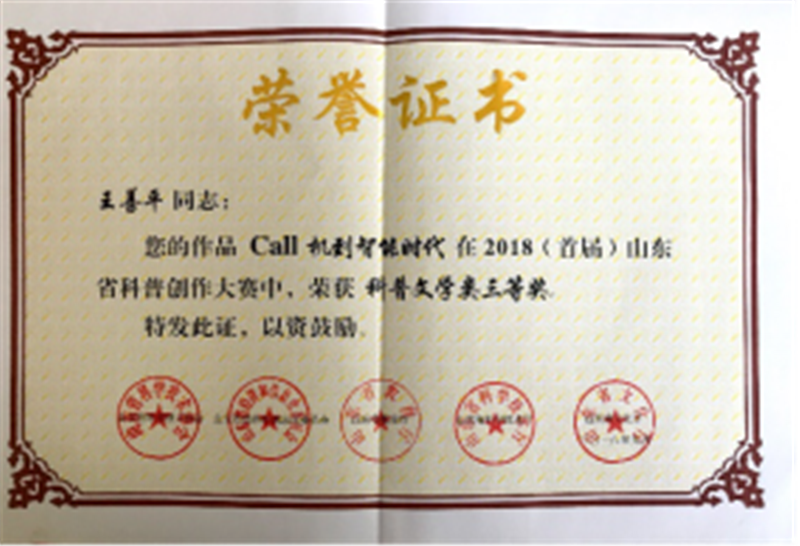 荣誉证书
王善平 同志：
您的作品 Call 机到智能时代 在 2018（首届）山东
省科普创作大赛中，荣获 科普文学类三等奖。
特发此证，以资鼓励。